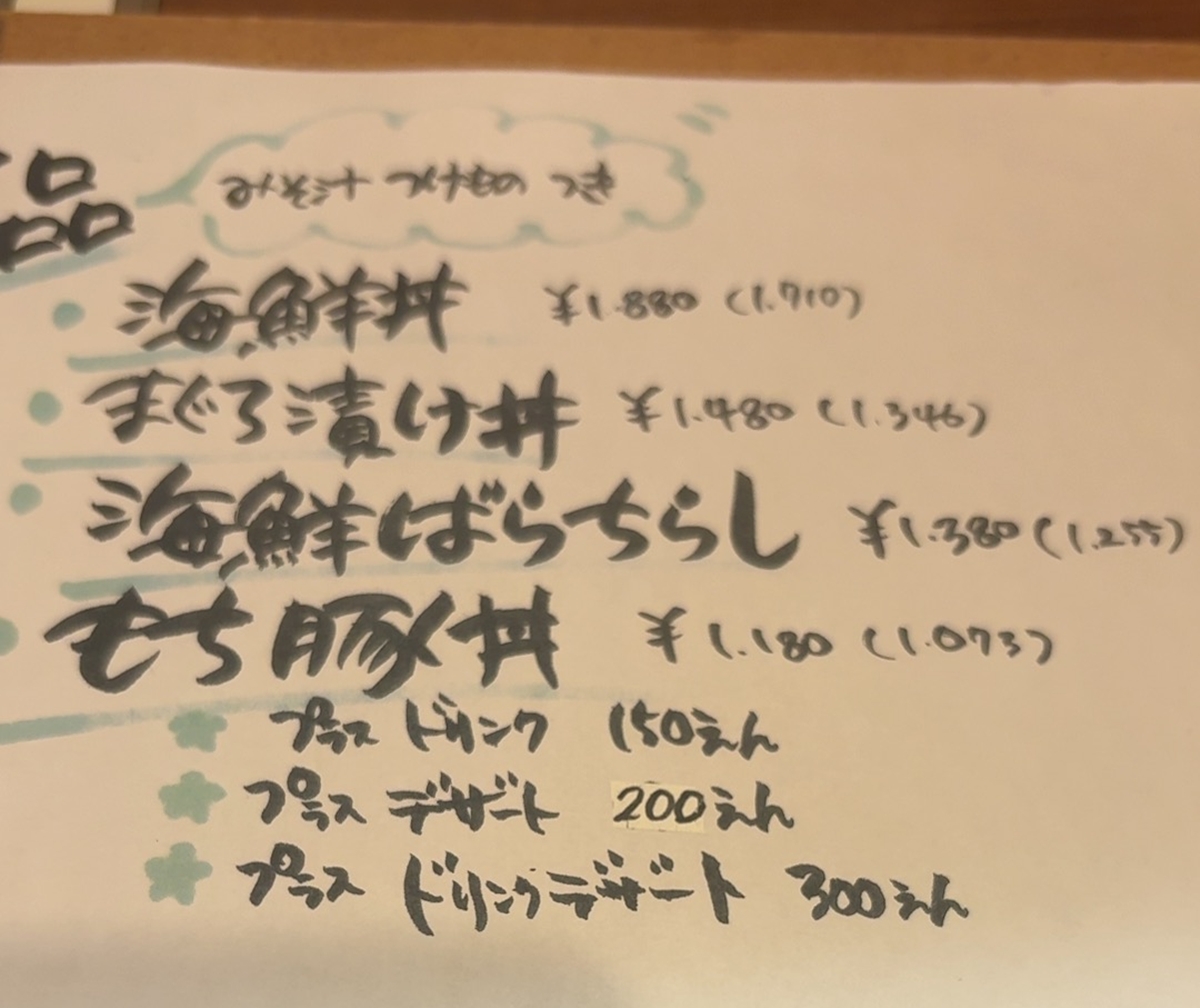 品
みそ汁 つけもの つき
海鮮丼 ¥1.880 (1.710)
まぐろ漬け丼 ¥1.480 (1.346)
海鮮ばらちらし ¥1.380 (1.255)
もち豚丼 ¥1.180 (1.073)
プラス ドリンク 150えん
プラス デザート 200えん
プラス ドリンクデザート 300えん